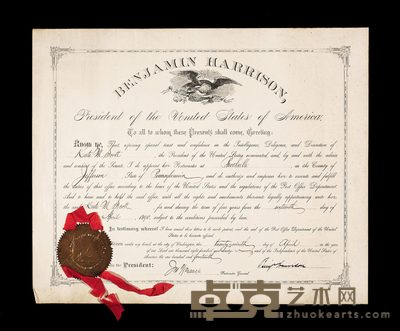 BENJAMIN HARRISON,
President of the United States of America,
To all to whom these Presents shall come, Greeting:
Know ye, That reposing special trust and confidence in the Intelligence, Diligence, and Discretion of
Kate M. Scott, the President of the United States nominated, and, by and with the advice
and consent of the Senate, I do appoint Postmaster at in the County of
Jefferson State of Pennsylvania and do authorize and empower to execute and fulfill
the duties of that office according to the laws of the United States and the regulations of the Post Office Department.
And to have and to hold the said office, with all the rights and emoluments thereunto legally appertaining unto
Kate M. Scott during the term of four years from the day of
April 1890, subject to the conditions prescribed by law.
In testimony whereof I have caused these letters to be made patent, and the seal of the Post Office Department of the United
States to be hereunto affixed.
at the City of Washington, the day of April in the year
of our Lord one thousand eight hundred and and of the Independence of the United States of
America the one hundred and fourteenth
By the President:
Postmaster General.
卓克艺术网
zhuokearts.com